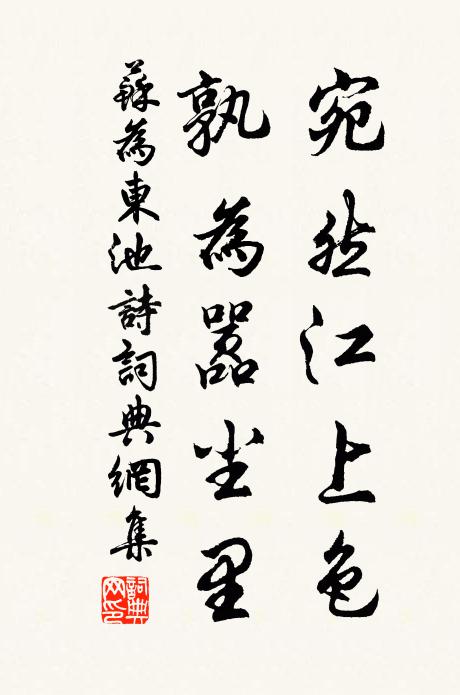 宛然江上色
孰為嚣尘里
蘇為東池詩詞典網集
詞典网印